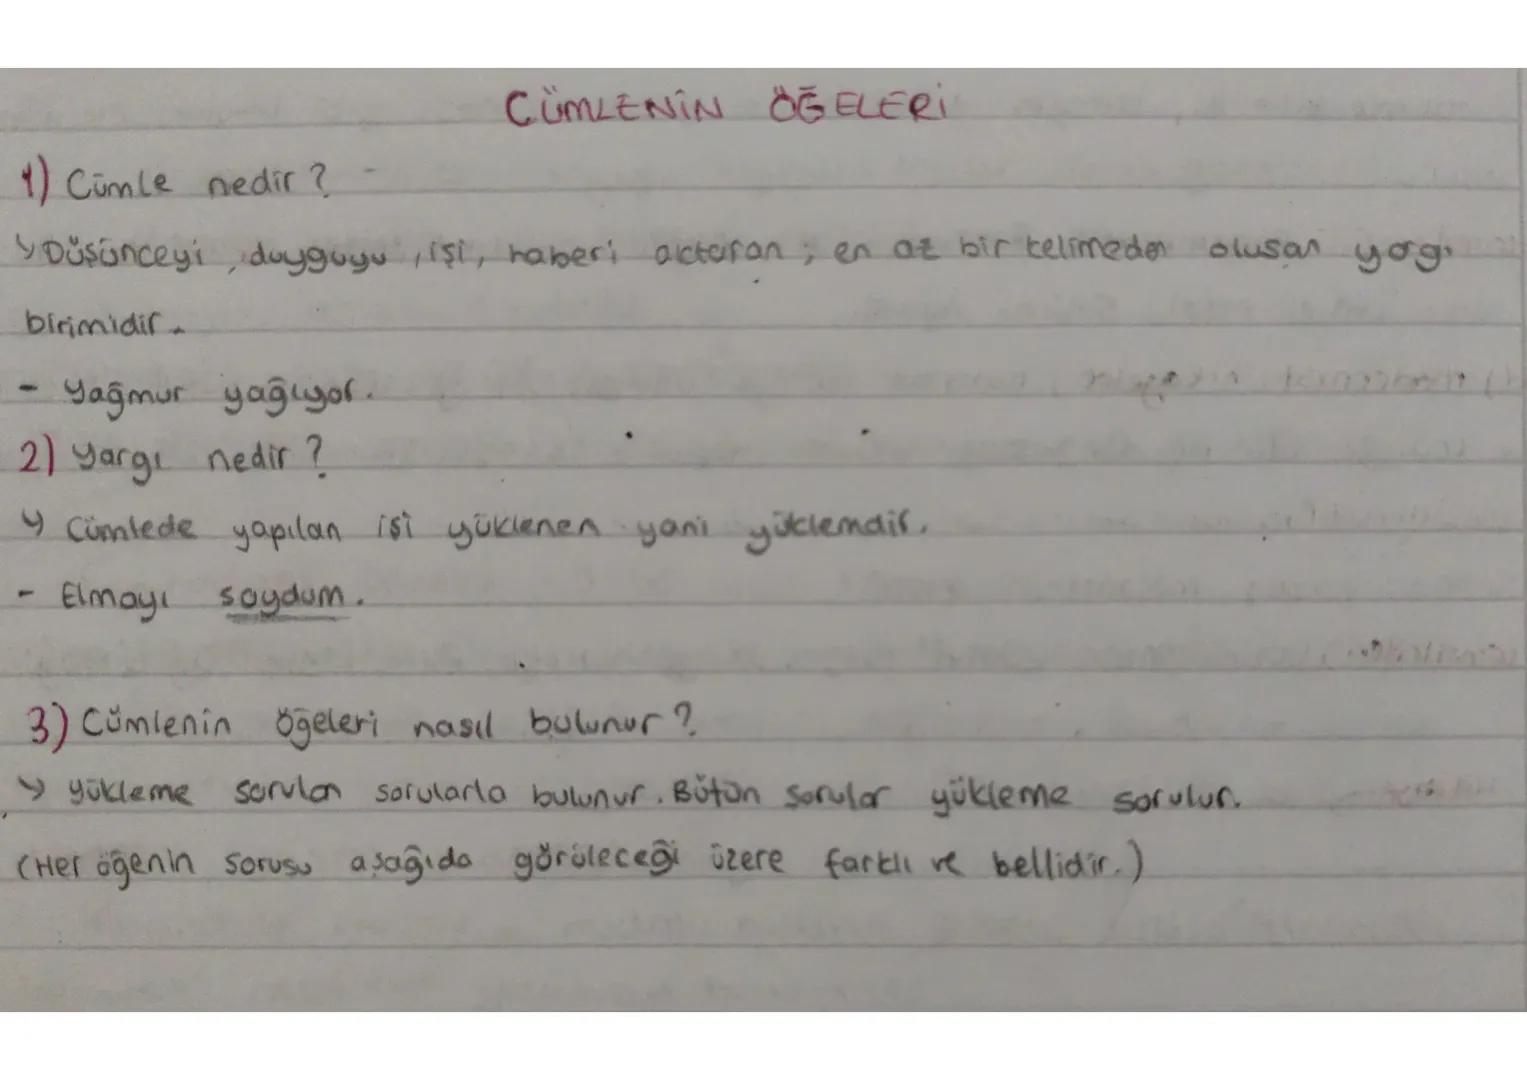 CÜMLENİN ÖĞELERİ
1) Cümle nedir?
↳ Düşünceyi, duyguyu, işi, haberi aktaran; en az bir kelimeden olusan yargı
birimidir.
- Yağmur yağıyor.
2) Yargı nedir?
↳ Cümlede yapılan işi yüklenen yani yüklemdir.
- Elmayı soydum.
3) Cümlenin öğeleri nasıl bulunur?
↳ yükleme sorulan sorularla bulunur. Bütün sorular yükleme sorulur.
(Her öğenin sorusu aşağıda görüleceği üzere farklı ve bellidir.)